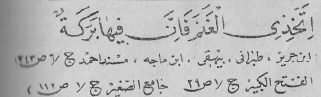 اِتَّخِذِى الْغَنَمَ فَاِنَّ فِيهَا بَرَكَةً
(ابن جریر، طبرانی، بیہقی، ابن ماجه، مسند احمد ج ٦ ص ٣٤٣
الفتح الكبير ج ١ ص ٢٩ جامع الصغير ج ١ ص ١١٢)